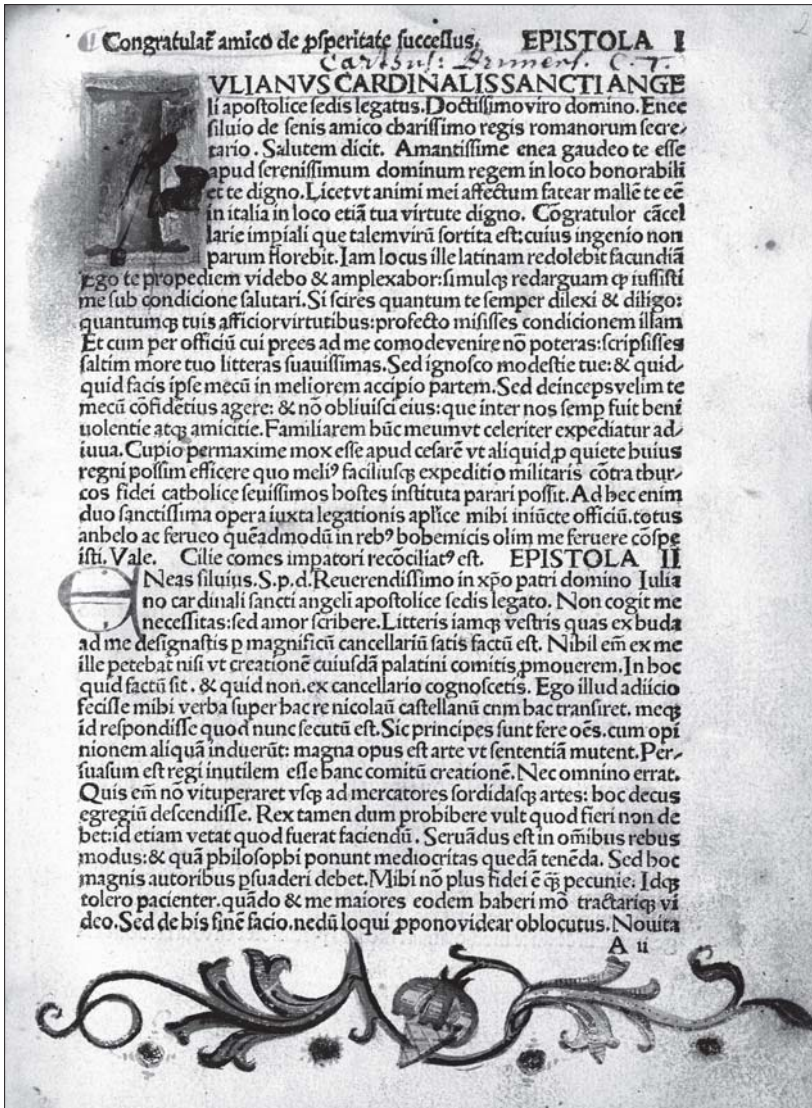 Congratulat᷒ amico de ꝓsperitate successus. EPISTOLA I
Cartus: C. T.
IVLIANVS CARDINALIS SANCTI ANGE
li apostolice sedis legatus. Doctissimo viro domino. Enee
siluio de senis amico charissimo regis romanorum secre/
tario. Salutem dicit. Amantissime enea gaudeo te esse
apud serenissimum dominum regem in loco honorabili
et te digno. Licet vt animi mei affectum fatear mallē te eē
in italia in loco etiā tua virtute digno. Cōgratulor cācel
larie impiali que talem virū sortita est: cuius ingenio non
parum florebit. Iam locus ille latinam redolebit facundiā
Ego te propediem videbo & amplexabor: simulqꝫ redarguam ꝙ iussisti
me sub condicione salutari. Si scires quantum te semper dilexi & diligo:
quantumqꝫ tuis afficior virtutibus: profecto misisses condicionem illam
Et cum per officiū cui prees ad me comode venire nō poteras: scripsisses
saltim more tuo litteras suauissimas. Sed ignosco modestie tue: & quid
quid facis ipse mecū in meliorem accipio partem. Sed deinceps velim te
mecū cōfidetius agere: & nō obliuisci eius: que inter nos semp fuit beni
uolentie atqꝫ amicitie. Familiarem hūc meum vt celeriter expediatur ad/
iuua. Cupio permaxime mox esse apud cesarē vt aliquid ꝓ quiete huius
regni possim efficere quo meliꝰ faciliusqꝫ expeditio militaris cōtra thur/
cos fidei catholice seuissimos hostes instituta parari possit. Ad hec enim
duo sanctissima opera iuxta legationis aplice mihi iniūcte officiū. totus
anhelo ac ferueo quēadmodū in rebꝰ bohemicis olim me feruere cōspe
isti. Vale. Cilie comes impatori recōciliatꝰ est. EPISTOLA II
ENeas siluius. S. p. d. Reuerendissimo in xp̄o patri domino Iulia
no cardinali sancti angeli apostolice sedis legato. Non cogit me
necessitas: sed amor scribere. Litteris iamqꝫ vestris quas ex buda
ad me designastis p magnificū cancellariū satis factū est. Nihil em̄ ex me
ille petebat nisi vt creationē cuiusdā palatini comitis ꝓmouerem. In hoc
quid factū sit. & quid non. ex cancellario cognoscetis. Ego illud adiicio
fecisse mihi verba super hac re nicolaū castellanū cnm hac transiret. meqꝫ
id respondisse quod nunc secutū est. Sic principes sunt fere oēs. cum opi
nionem aliquā induerūt: magna opus est arte vt sententiā mutent. Per/
suasum est regi inutilem esse hanc comitū creationē. Nec omnino errat.
Quis em̄ nō vituperaret vsqꝫ ad mercatores sordidasqꝫ artes: hoc decus
egregiū descendisse. Rex tamen dum prohibere vult quod fieri non de
bet: id etiam vetat quod fuerat faciendū. Seruādus est in om̄ibus rebus
modus: & quā philosophi ponunt mediocritas quedā tenēda. Sed hoc
magnis autoribus psuaderi debet. Mihi nō plus fidei ē qꝫ pecunie. Idqꝫ
tolero pacienter. quādo & me maiores eodem haberi mō tractariqꝫ vi
deo. Sed de his finē facio. nedū loqui ꝓpono videar oblocutus. Nouita
A ii